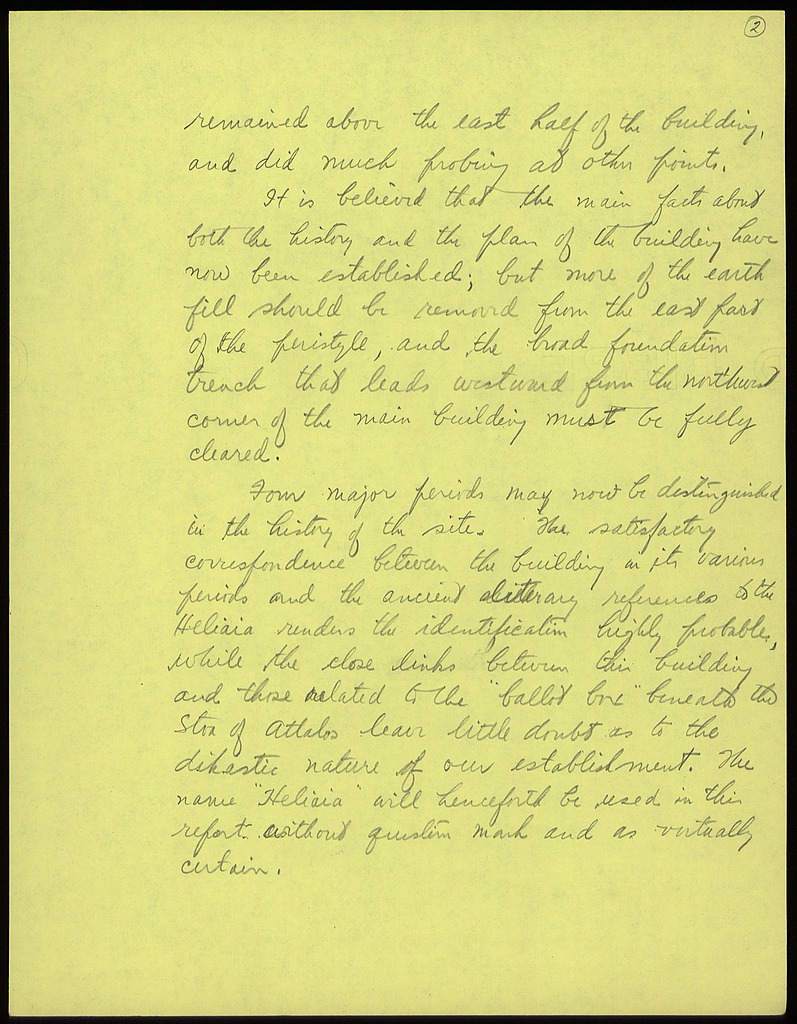 2
remained above the east half of the building,
and did much probing at other points.
It is believed that the main facts about
both the history and the plan of the building have
now been established; but more of the earth
fill should be removed from the east part
of the peristyle, and the broad foundation
trench that leads westward from the northwest
corner of the main building must be fully
cleared.
Four major periods may now be distinguished
in the history of the site. The satisfactory
correspondence between the building in its various
periods and the ancient literary references to the
Heliaia renders the identification highly probable,
while the close links between this building
and those related to the "ballot box" beneath the
Stoa of Attalos leave little doubt as to the
dikastic nature of our establishment. The
name "Heliaia" will henceforth be used in this
report without question mark and as virtually
certain.